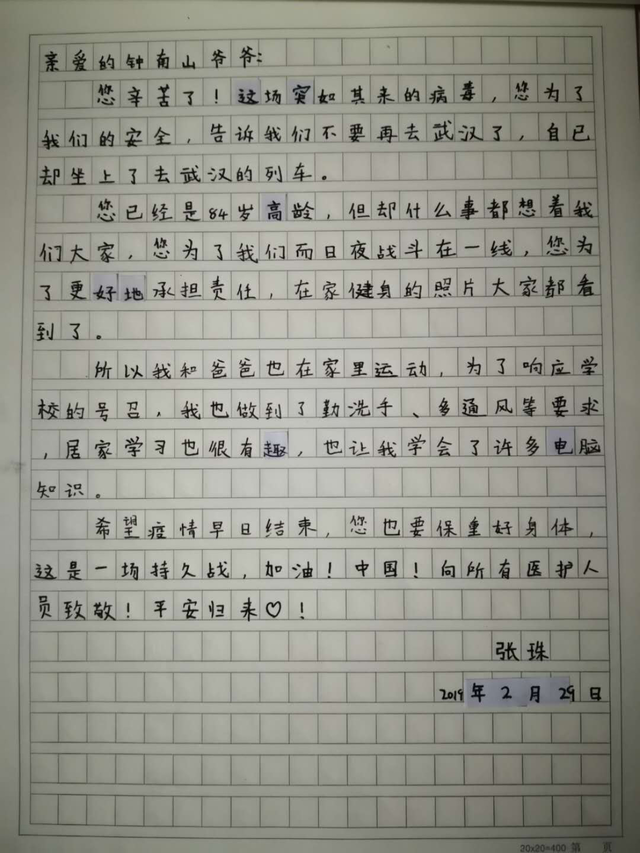 亲爱的钟南山爷爷:
您辛苦了！这场突如其来的病毒，您为了
我们的安全，告诉我们不要再去武汉了，自己
却坐上了去武汉的列车。
您已经是84岁高龄，但却什么事都想着我
们大家，您为了我们而日夜战斗在一线，您为
了更好地承担责任，在家健身的照片大家都看
到了。
所以我和爸爸也在家里运动，为了响应学
校的号召，我也做到了勤洗手、多通风等要求
，居家学习也很有趣，也让我学会了许多电脑
知识。
希望疫情早日结束，您也要保重好身体，
这是一场持久战，加油！中国！向所有医护人
员致敬！平安归来♡！
张珠
2019年2月29日
20x20=400 第 页